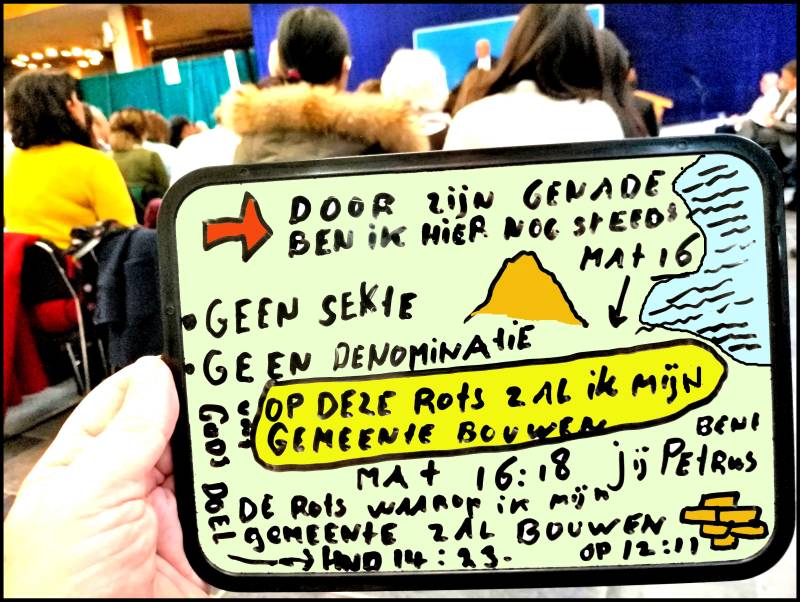 DOOR ZIJN GENADE
BEN IK HIER NOG STEEDS
MAT 16
• GEEN SEKTE
• GEEN DENOMINATIE
OP DEZE ROTS ZAL IK MIJN
GEMEENTE BOUWEN
BENT
MAT 16:18 jij PETRUS
DE ROTS WAAROP IK MIJN
GEMEENTE ZAL BOUWEN
HND 14:23.
OP 12:11
GODS DOEL